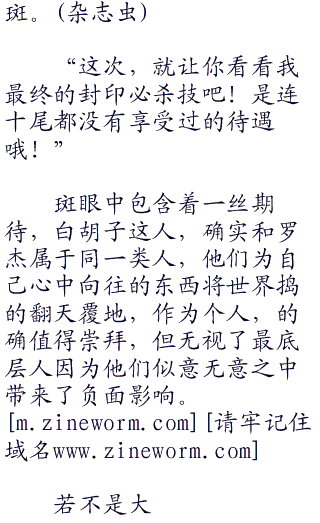 斑。(杂志虫)
“这次，就让你看看我
最终的封印必杀技吧！是连
十尾都没有享受过的待遇
哦！”
斑眼中包含着一丝期
待，白胡子这人，确实和罗
杰属于同一类人，他们为自
己心中向往的东西将世界捣
的翻天覆地，作为个人，的
确值得崇拜，但无视了最底
层人因为他们似意无意之中
带来了负面影响。
[m.zineworm.com][请牢记住
域名www.zineworm.com]
若不是大